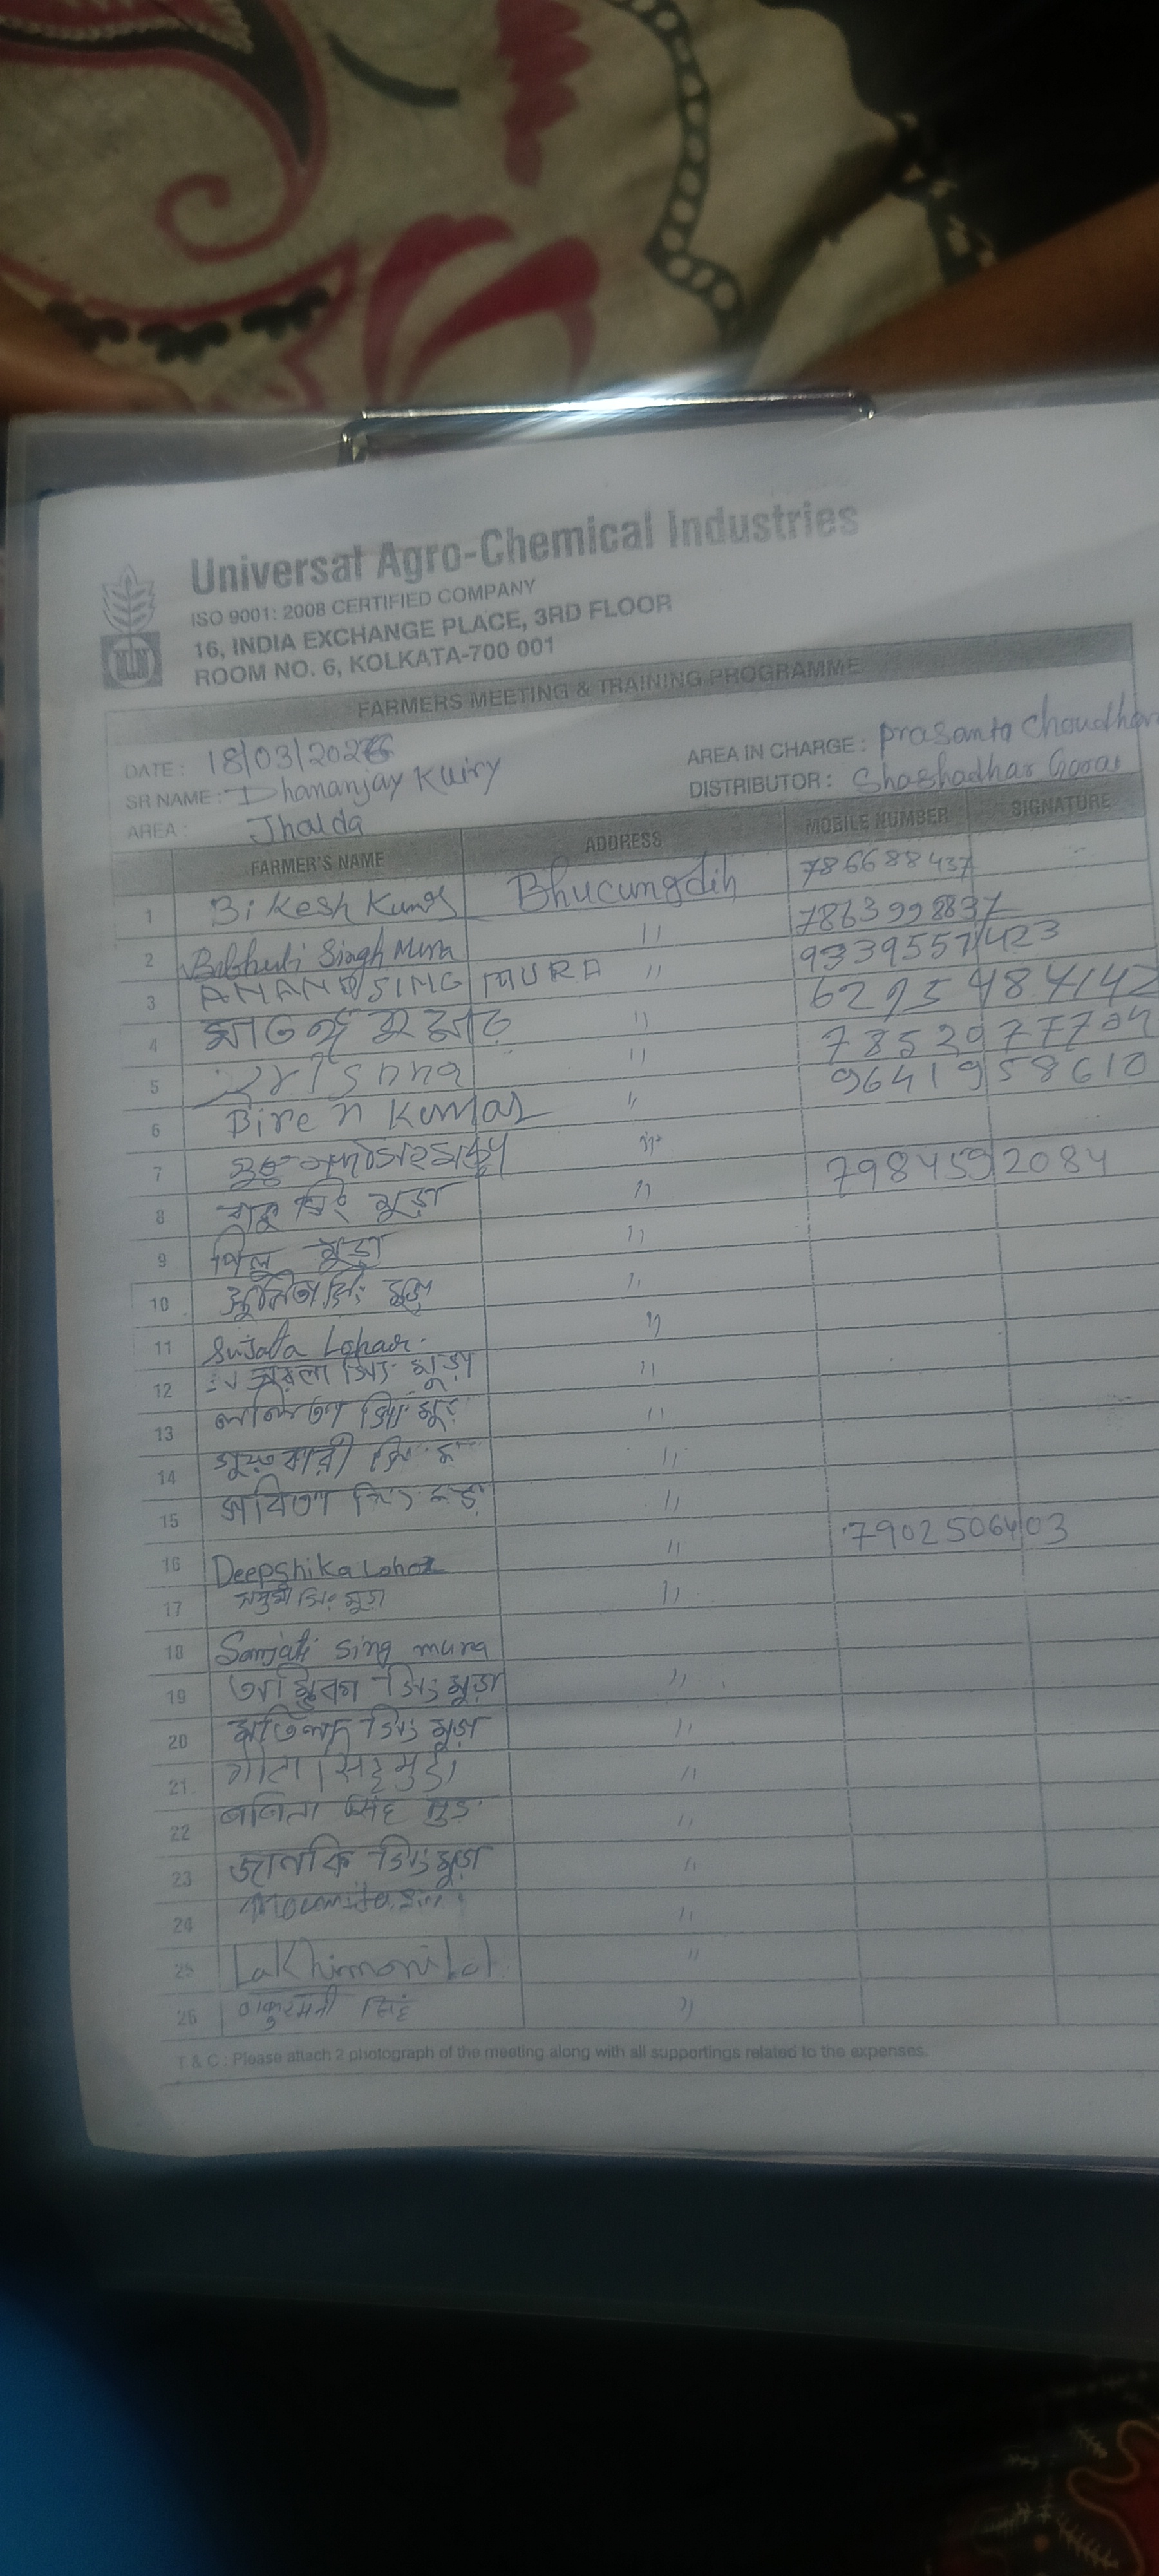 Universal Agro-Chemical Industries
ISO 9001: 2008 CERTIFIED COMPANY
16, INDIA EXCHANGE PLACE, 3RD FLOOR
ROOM NO. 6, KOLKATA-700 001
FARMERS MEETING & TRAINING PROGRAMME
DATE: 18/03/2026 AREA IN CHARGE: Prasanta Choudhar
SR NAME: Dhananjay Kuiry DISTRIBUTOR: Shashadhar Gorai
AREA: Jhalda
FARMER'S NAME ADDRESS MOBILE NUMBER SIGNATURE
1 Bikesh Kumar Bhucungdih 786688437
2 Bibhuti Singh Mura " 7863998837
3 ANAND SING MURA " 9339557423
4 " 6295484142
5 Krisnna " 7852977704
6 Biren Kumar " 9641958610
7 "
8 সিং মুড়া " 7984592084
9 মুড়া "
10 সুনিতা সিং মুড়া "
11 Sujata Lohar. "
12 সরলা সিং মুড়া "
13 ললিতা সিং মুড়া "
14 "
15 সবিতা সিং "
16 Deepshika Lohar " 7902506403
17 সিং মুড়া "
18 Sanjali sing mura
19 অম্বিকা সিং মুড়া "
20 সিং মুড়া "
21 गीता सिंह मुड़ा "
22 सिंह मुड़ा "
23 জানকি সিং মুড়া "
24 Moumita "
25 Lakhimoni "
26 ठाकुरमनी सिंह "
T & C : Please attach 2 photograph of the meeting along with all supportings related to the expenses.